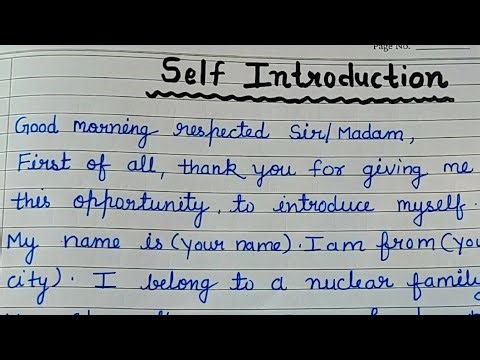 Page No.
Self Introduction
Good morning respected Sir/Madam,
First of all, thank you for giving me
this opportunity, to introduce myself.
My name is (your name). I am from (you
city). I belong to a nuclear family